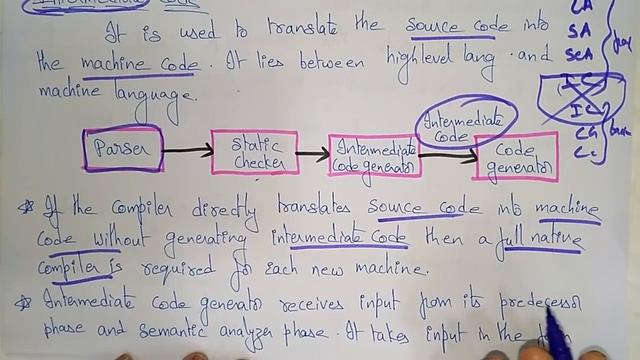 Intermediate Code
It is used to translate the source code into
the machine code. It lies between highlevel lang. and
machine language.
LA
SA
SeA
IC
CG
Parser
Static
Checker
Intermediate
Code generator
Intermediate
Code
Code
generator
If the compiler directly translates source code into machine
Code without generating intermediate code then a full native
Compiler is required for each new machine.
Intermediate Code generator receives input from its predecessor
phase and semantic analyzer phase. It takes input in the